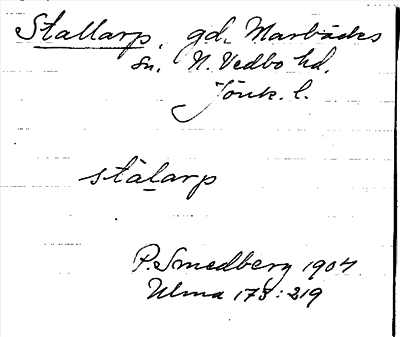 Stallarp, gd, Marbäcks
sn. N. Vedbo hd.
Jönk. l.
stálarp
P. Smedberg 1904
Ulma 173:219